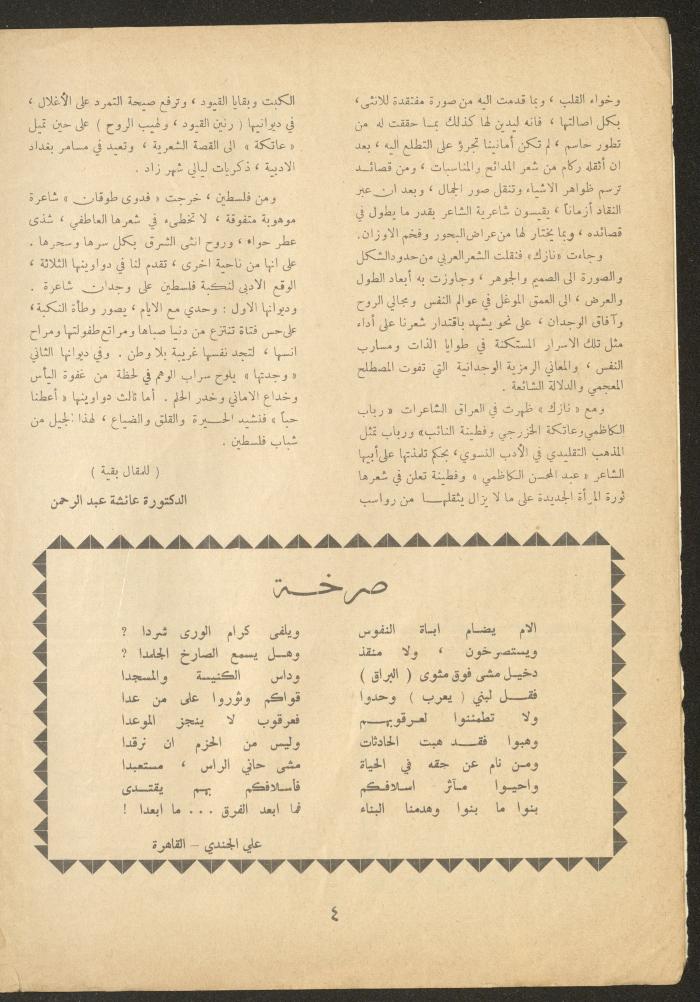 وخواء القلب ، وبما قدمت اليه من صورة مفتقدة للانثى،
بكل اصالتها ، فانه ليدين لها كذلك بمـا حققت له من
تطور حاسم ، لم تكن أمانينا تجرؤ على التطلع اليه ، بعد
ان أثقله ركام من شعر المدائح والمناسبات ، ومن قصائـد
ترسم ظواهر الاشياء وتنقل صور الجمال ، وبعد ان عبر
النقاد أزماناً ، يقيسون شاعرية الشاعر بقدر ما يطول في
قصائده ، وبما يختار لها من عراض البحور وفخم الاوزان.
وجاءت «نازك» فنقلت الشعر العربي من حدود الشكل
والصورة الى الصميم والجوهر ، وجاوزت به أبعاد الطول
والعرض ، الى العمق الموغل في عوالم النفس ومجالي الروح
وآفاق الوجدان ، على نحو يشهد باقتدار شعرنا على أداء
مثل تلك الاسرار المستكنة في طوايا الذات ومسارب
النفس ، والمعاني الرمزية الوجدانية التي تفوت المصطلح
المعجمي والدلالة الشائعة .
ومع « نازك » ظهرت في العراق الشاعرات «رباب
الكاظمي وعاتكة الخزرجي وفطينة النائب» ورباب تمثل
المذهب التقليدي في الأدب النسوي، بحكم تلمذتها على أبيها
الشاعر « عبد المحسن الكاظمي » وفطينة تعلن في شعرها
ثورة المرأة الجديدة على ما لا يزال يثقلهـــا من رواسب
الكبت وبقايا القيود ، وترفع صيحة التمرد على الأغلال ،
في ديوانيها ( رنين القيود ، ولهيب الروح ) على حين تميل
« عاتكة » الى القصة الشعرية ، وتعيد في مسامر بغداد
الادبية ، ذكريات ليالي شهر زاد .
ومن فلسطين ، خرجت « فدوى طوقان » شاعرة
موهوبة متفوقة ، لا تخطىء في شعرها العاطفي ، شذى
عطر حواء ، وروح انثى الشرق بكل سرها وسحرها .
على انها من ناحية اخرى ، تقدم لنا في دواوينها الثلاثة ،
الوقع الادبي لنكبة فلسطين على وجدان شاعرة .
وديوانها الاول : وحدي مع الايام ، يصور وطأة النكبة،
على حس فتاة تنتزع من دنيا صباها ومراتع طفولتها ومراح
انسها ، لتجد نفسها غريبة بلا وطن . وفي ديوانها الثاني
« وجدتها » يلوح سراب الوهم في لحظة من غفوة اليأس
وخداع الاماني وخدر الحلم . أما ثالث دواوينها « أعطنا
حباً » فنشيد الحـــيرة والقلق والضياع ، لهذا الجيل من
شباب فلسطين .
( للمقال بقية )
الدكتورة عائشة عبد الرحمن
صرخـــة
الام يضـام ابـاة النفوس ويلفى كرام الورى شردا ؟
ويستصرخون ، ولا منقذ وهـل يسمع الصارخ الجلمدا ؟
دخيـل مشى فوق مثوى ( البراق ) وداس الكنيسة والمسجدا
فقـــل لبني ( يعرب ) وحدوا قواكم وثوروا على من عدا
ولا تطمئنوا لعـرقوبهــم فعرقوب لا ينجز الموعدا
وهبوا فقـــد هبت الحادثات وليس من الحزم ان نرقدا
ومـن نام عن حقه في الحياة مشى حاني الراس ، مستعبدا
واحيـوا مـآثر اسلافـكم فأسـلافكم بهـم يقتـــدى
بنوا ما بنوا وهدمنا البناء فما ابعد الفرق ... ما ابعدا !
علي الجندي – القاهرة
٤